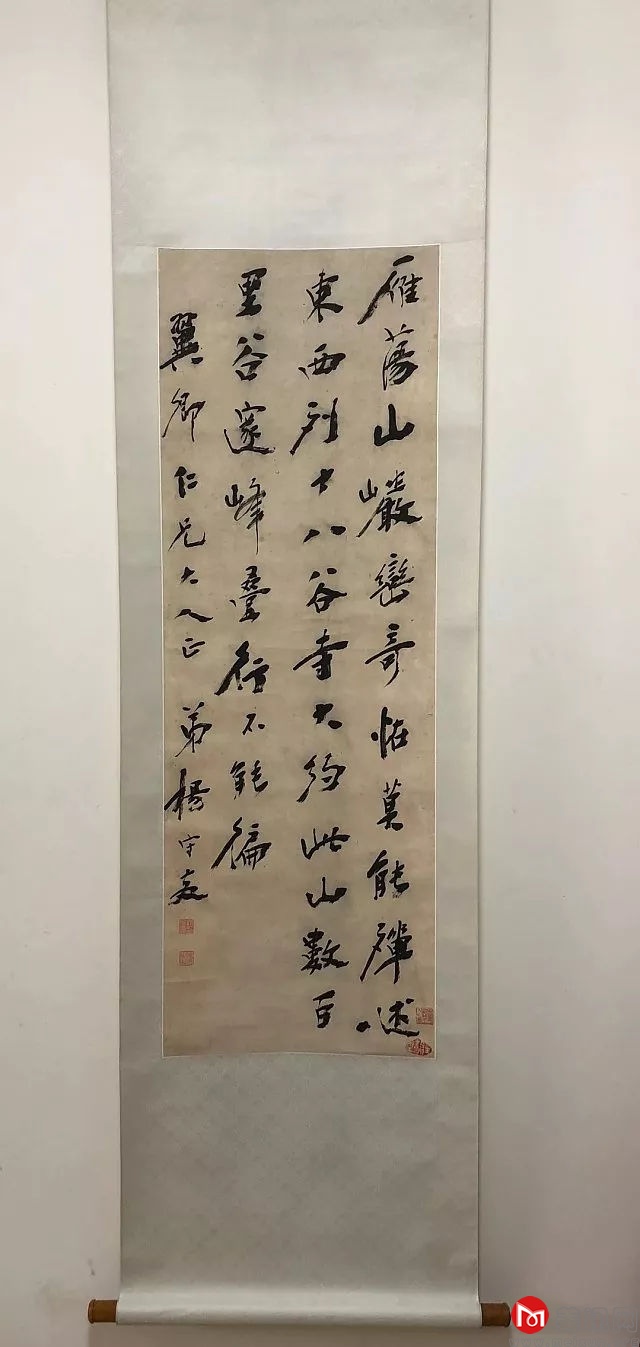 雁蕩山巖巒奇怪莫能殫述
東西列十八谷寺大約此山數百
里谷邃峰疊行不能徧
翼卿仁兄大人正 弟楊守